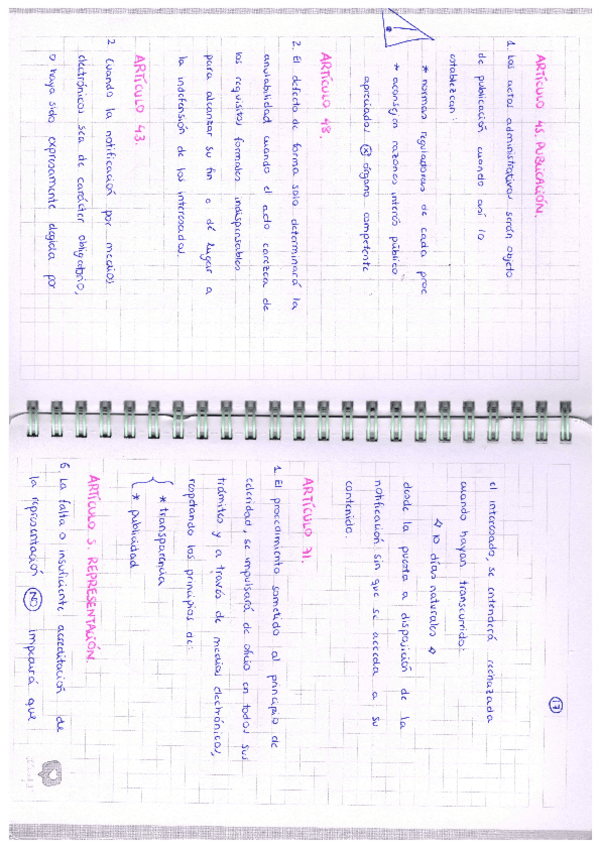 ARTÍCULO 45. PUBLICACIÓN.
1. Los actos administrativos serán objeto
de publicación cuando así lo
establezcan:
* normas reguladoras de cada proc
* aconsejen razones interés público
apreciados órgano competente
!
ARTÍCULO 48.
2. El defecto de forma solo determinará la
anulabilidad cuando el acto carezca de
los requisitos formales indispensables
para alcanzar su fin o dé lugar a
la indefensión de los interesados.
ARTÍCULO 43.
2 Cuando la notificación por medios
electrónicos sea de carácter obligatorio,
o haya sido expresamente elegida por
17
el interesado, se entenderá rechazada
cuando hayan transcurrido:
10 días naturales
desde la puesta a disposición de la
notificación sin que se acceda a su
contenido.
ARTÍCULO 71.
1. El procedimiento sometido al principio de
celeridad, se impulsará de oficio en todos sus
trámites y a través de medios electrónicos,
respetando los principios de:
* transparencia
* publicidad
ARTÍCULO 5. REPRESENTACIÓN.
6. La falta o insuficiente acreditación de
la representación NO impedirá que